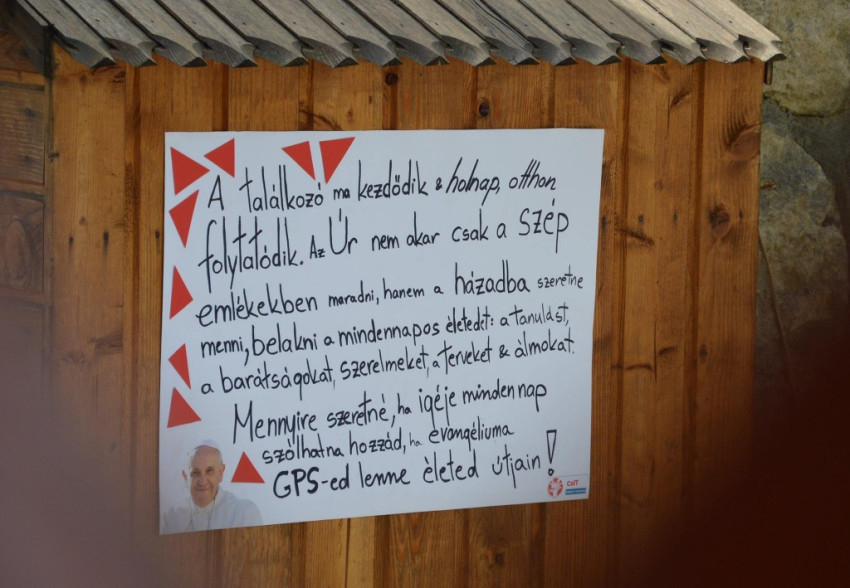 A találkozó ma kezdődik & holnap, otthon
folytatódik. Az Úr nem akar csak a szép
emlékekben maradni, hanem a házadba szeretne
menni, belakni a mindennapos életedét: a tanulást,
a barátságokat, szerelmeket, a terveket & álmokat.
Mennyire szeretné, ha igéje minden nap
szólhatna hozzád, ha evangéliuma
GPS-ed lenne életed útjain!